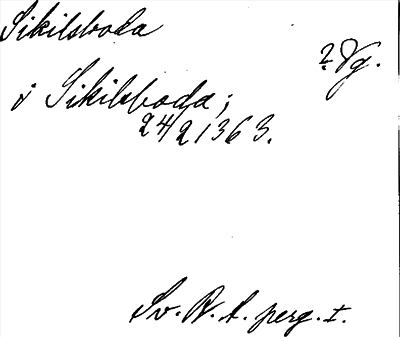 Sikilsboda
? Ög.
i Sikilsboda;
24/2 1363.
Sv. R. A. perg. I.